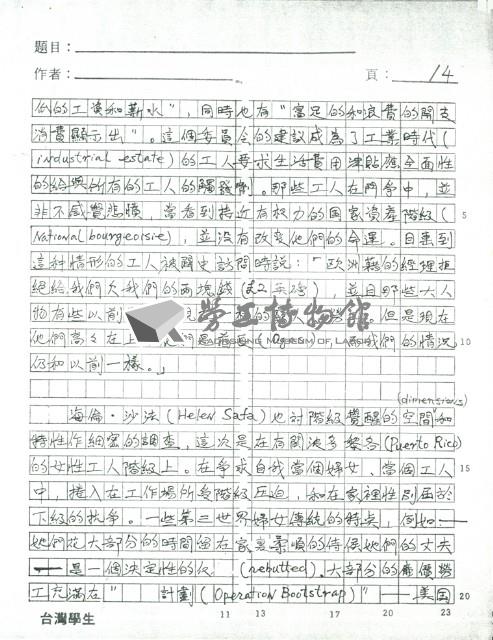 題目：
作者： 頁： 14
低的工資和薪水"，同時也有"富足的和浪費的開支
消費顯示出"。這個委員會的建議成為了工業時代(
industrial estate)的工人要求生活費用津貼應全面性
的給與所有的工人的觸發劑。那些工人在鬥爭中，並
非不感覺悲憤，當看到接近有权力的國家資產階級( 5
National bourgeoisie)，並沒有改變他們的命運。目睹到
這种情形的工人被歐史訪問時說：「歐洲籍的經理拒
絕給我們大我們的兩塊錢 並且那些大人
物有些以前 但是現在
他們高々在上 而我們的情況 10
仍和以前一樣。」
勞工博物館
KAOHSIUNG MUSEUM OF LABOR
(dimensions)
海倫·沙法(Helen Safa)也对階級覺醒的空間和
特性作細密的調查，這次是在有関波多黎各(Puerto Rico)
的女性工人階級上。在爭求自我當個婦女、當個工人 15
中，捲入在工作場所受階級压迫，和在家裡性別屈於
下級的抗爭。一些第三世界婦女傳統的特点，例如──
她們花大部分的時間留在家裏柔順的侍候她們的丈夫
──是一個決定性的 (rebutted)．大部分的廉價勞
工充滿在" 計劃(Operation Bootstrap)"──美国 20
台灣學生 11 13 17 20 23